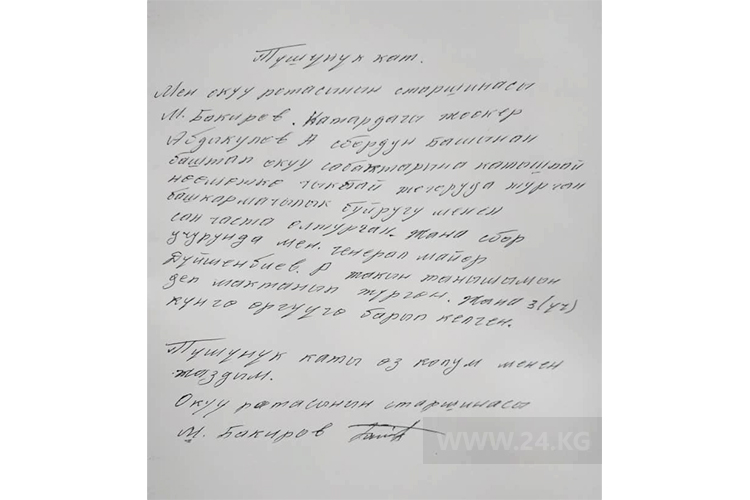 Түшүнүк кат.
Мен окуу ротасынын старшинасы
М. Бакиров. Катардагы жоокер
Абдикулов А сбордун башынан
баштап окуу сабактарына катышпай
нөөмөткө чыкпай тегеруда турган
башкармачылык буйругу менен
сан часта олтурган. Жана сбор
учурунда мен. генерал майор
Дүйшенбиев. Р жакын танышымын
деп мактанып турган. Жана 3(үч)
күнгө өргүүгө барып келген.
Түшүнүк каты өз колум менен
жаздым.
Окуу ротасынын старшинасы
М. Бакиров
WWW.24.KG